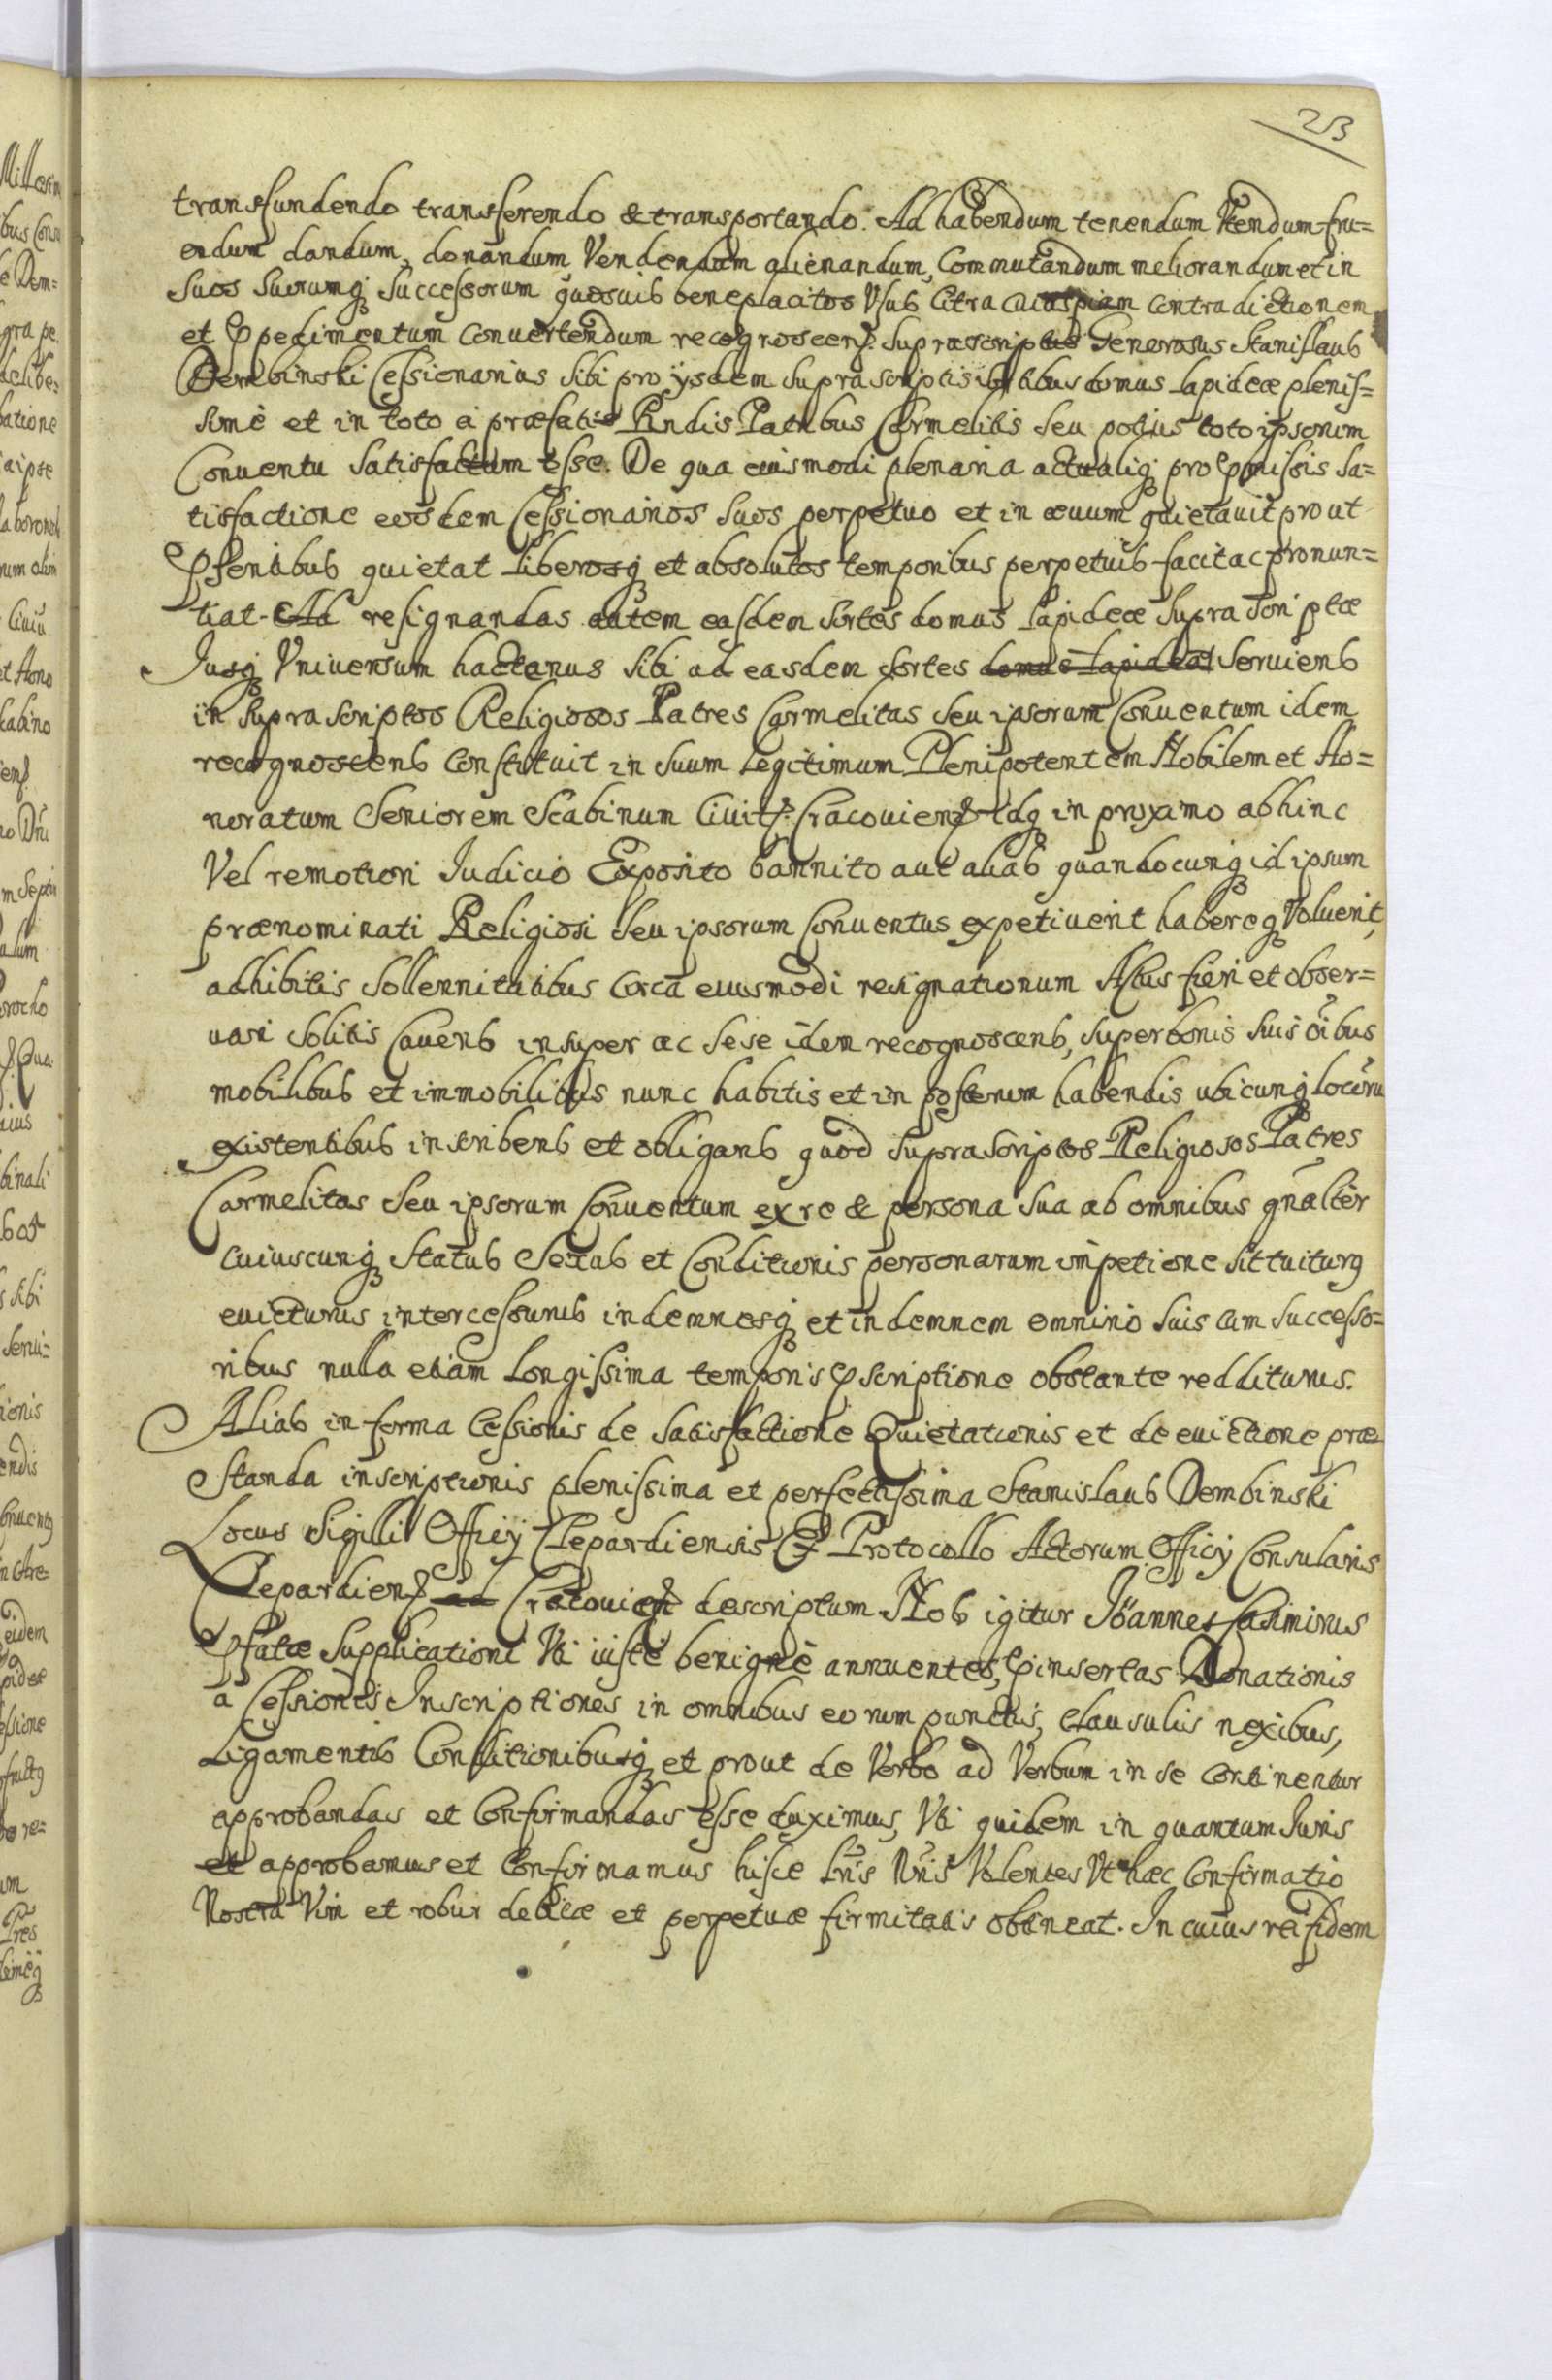 23
transfundendo transferendo & transportando. Ad habendum tenendum Vtendum fru=
endum dandum, donandum Vendendum alienandum, Commutandum meliorandum et in
Suos Suorumq Successorum quosuis beneplacitos Vsus Citra cuiuspiam contradictionem
et Impedimentum Conuertendum recognoscens. Suprascriptus Generosus Stanislaus
Dembinski Cessionarius Sibi pro ijsdem Suprascriptis sortibus domus lapideæ plenis=
sime et in toto à præfatis Rndis Patribus Carmelitis Seu potius toto ipsorum
Conuentu Satisfactum esse. De qua euismodi plenaria actualiq pro præmissis Sa=
tisfactione eosdem Cessionarios Suos perpetuo et in æuum quietauit prout
Psentibus quietat liberosq et absolutos temporibus perpetuis facit ac pronun=
tiat. Ad resignandas autem easdem Sortes domus lapideæ Supra Scriptæ
Jusq Vniuersum hactenus Sibi ad easdem Sortes domus lapideæ Seruiens
in Suprascriptos Religiosos Patres Carmelitas Seu ipsorum Conuentum idem
recognoscens Constituit in Suum Legitimum Plenipotentem Nobilem et Ho=
noratum Seniorem Scabinum Ciuit. Cracouiens. Idq in proximo abhinc
Vel remotiori Judicio Exposito bannito aut alias quandocunq id ipsum
prænominati Religiosi Seu ipsorum Conuentus expetiuerit habereq Voluerit,
adhibitis Sollennitatibus Circa euusmodi resignationum Actus fieri et obser=
uari Solitis Cauens insuper ac Sese idem recognoscens, Super bonis Suis oibus
mobilibus et immobilibus nunc habitis et in posterum habendis ubicunq locoru
existentibus inscribens et obligans quod Suprascriptos Religiosos Patres
Carmelitas Seu ipsorum Conuentum ex re & persona Sua ab omnibus gnaliter
Cuiuscunq Status Sexus et Conditionis personarum impetione Sit tuiturq
euicturus intercessurus indemnesq et indemnem omnino Suis cum Successo=
ribus nulla etiam Longissima temporis Pscriptione obstante redditurus.
Alias in forma Cessionis de Satisfactione Quietationis et de euictione præ
Standa inscriptionis plenissima et perfectissima Stanislaus Dembinski
Locus Sigilli Officij Clepardiensis Ex Protocollo Actorum Officij Consularis
Clepardiens. ad Cracouiam descriptum Nos igitur Joannes Casimirus
Pfatæ Supplicationi Vti iuste benignè annuentes, Pinsertas Donationis
a Cessiones Inscriptiones in omnibus eorum punctis, Clausulis nexibus,
Ligamentis Conditionibusq et prout de Verbo ad Verbum in se continentur
approbandas et Confirmandas esse duximus, Vti quidem in quantum Juris
et approbamus et Confirmamus hisce Lris Nris Volentes Vt hæc Confirmatio
Nostra Vim et robur debitæ et perpetuæ firmitatis obtineat. In cuius rei fidem